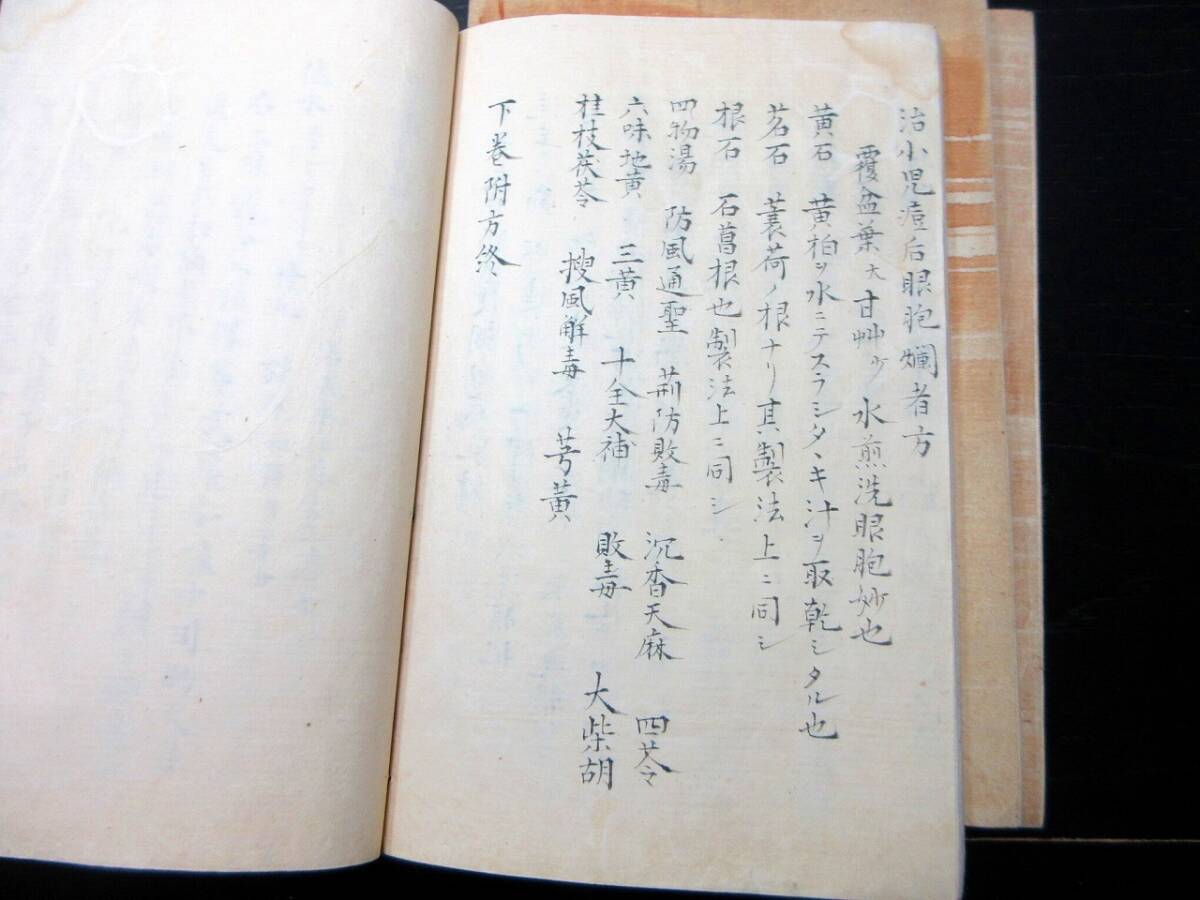 治小児痘后眼胞爛者方
覆盆葉大 甘艸少 水煎洗眼胞妙也
黄石 黄柏ヲ水ニテスラシタヽキ汁ヲ取乾シタル也
茗石 蓑荷ノ根ナリ其製法上ニ同シ
根石 石菖根也製法上ニ同シ
四物湯 防風通聖 荊防敗毒 沉香天麻 四苓
六味地黄 三黄 十全大補 敗毒 大柴胡
桂枝茯苓 搜風解毒 芎黄
下巻附方終